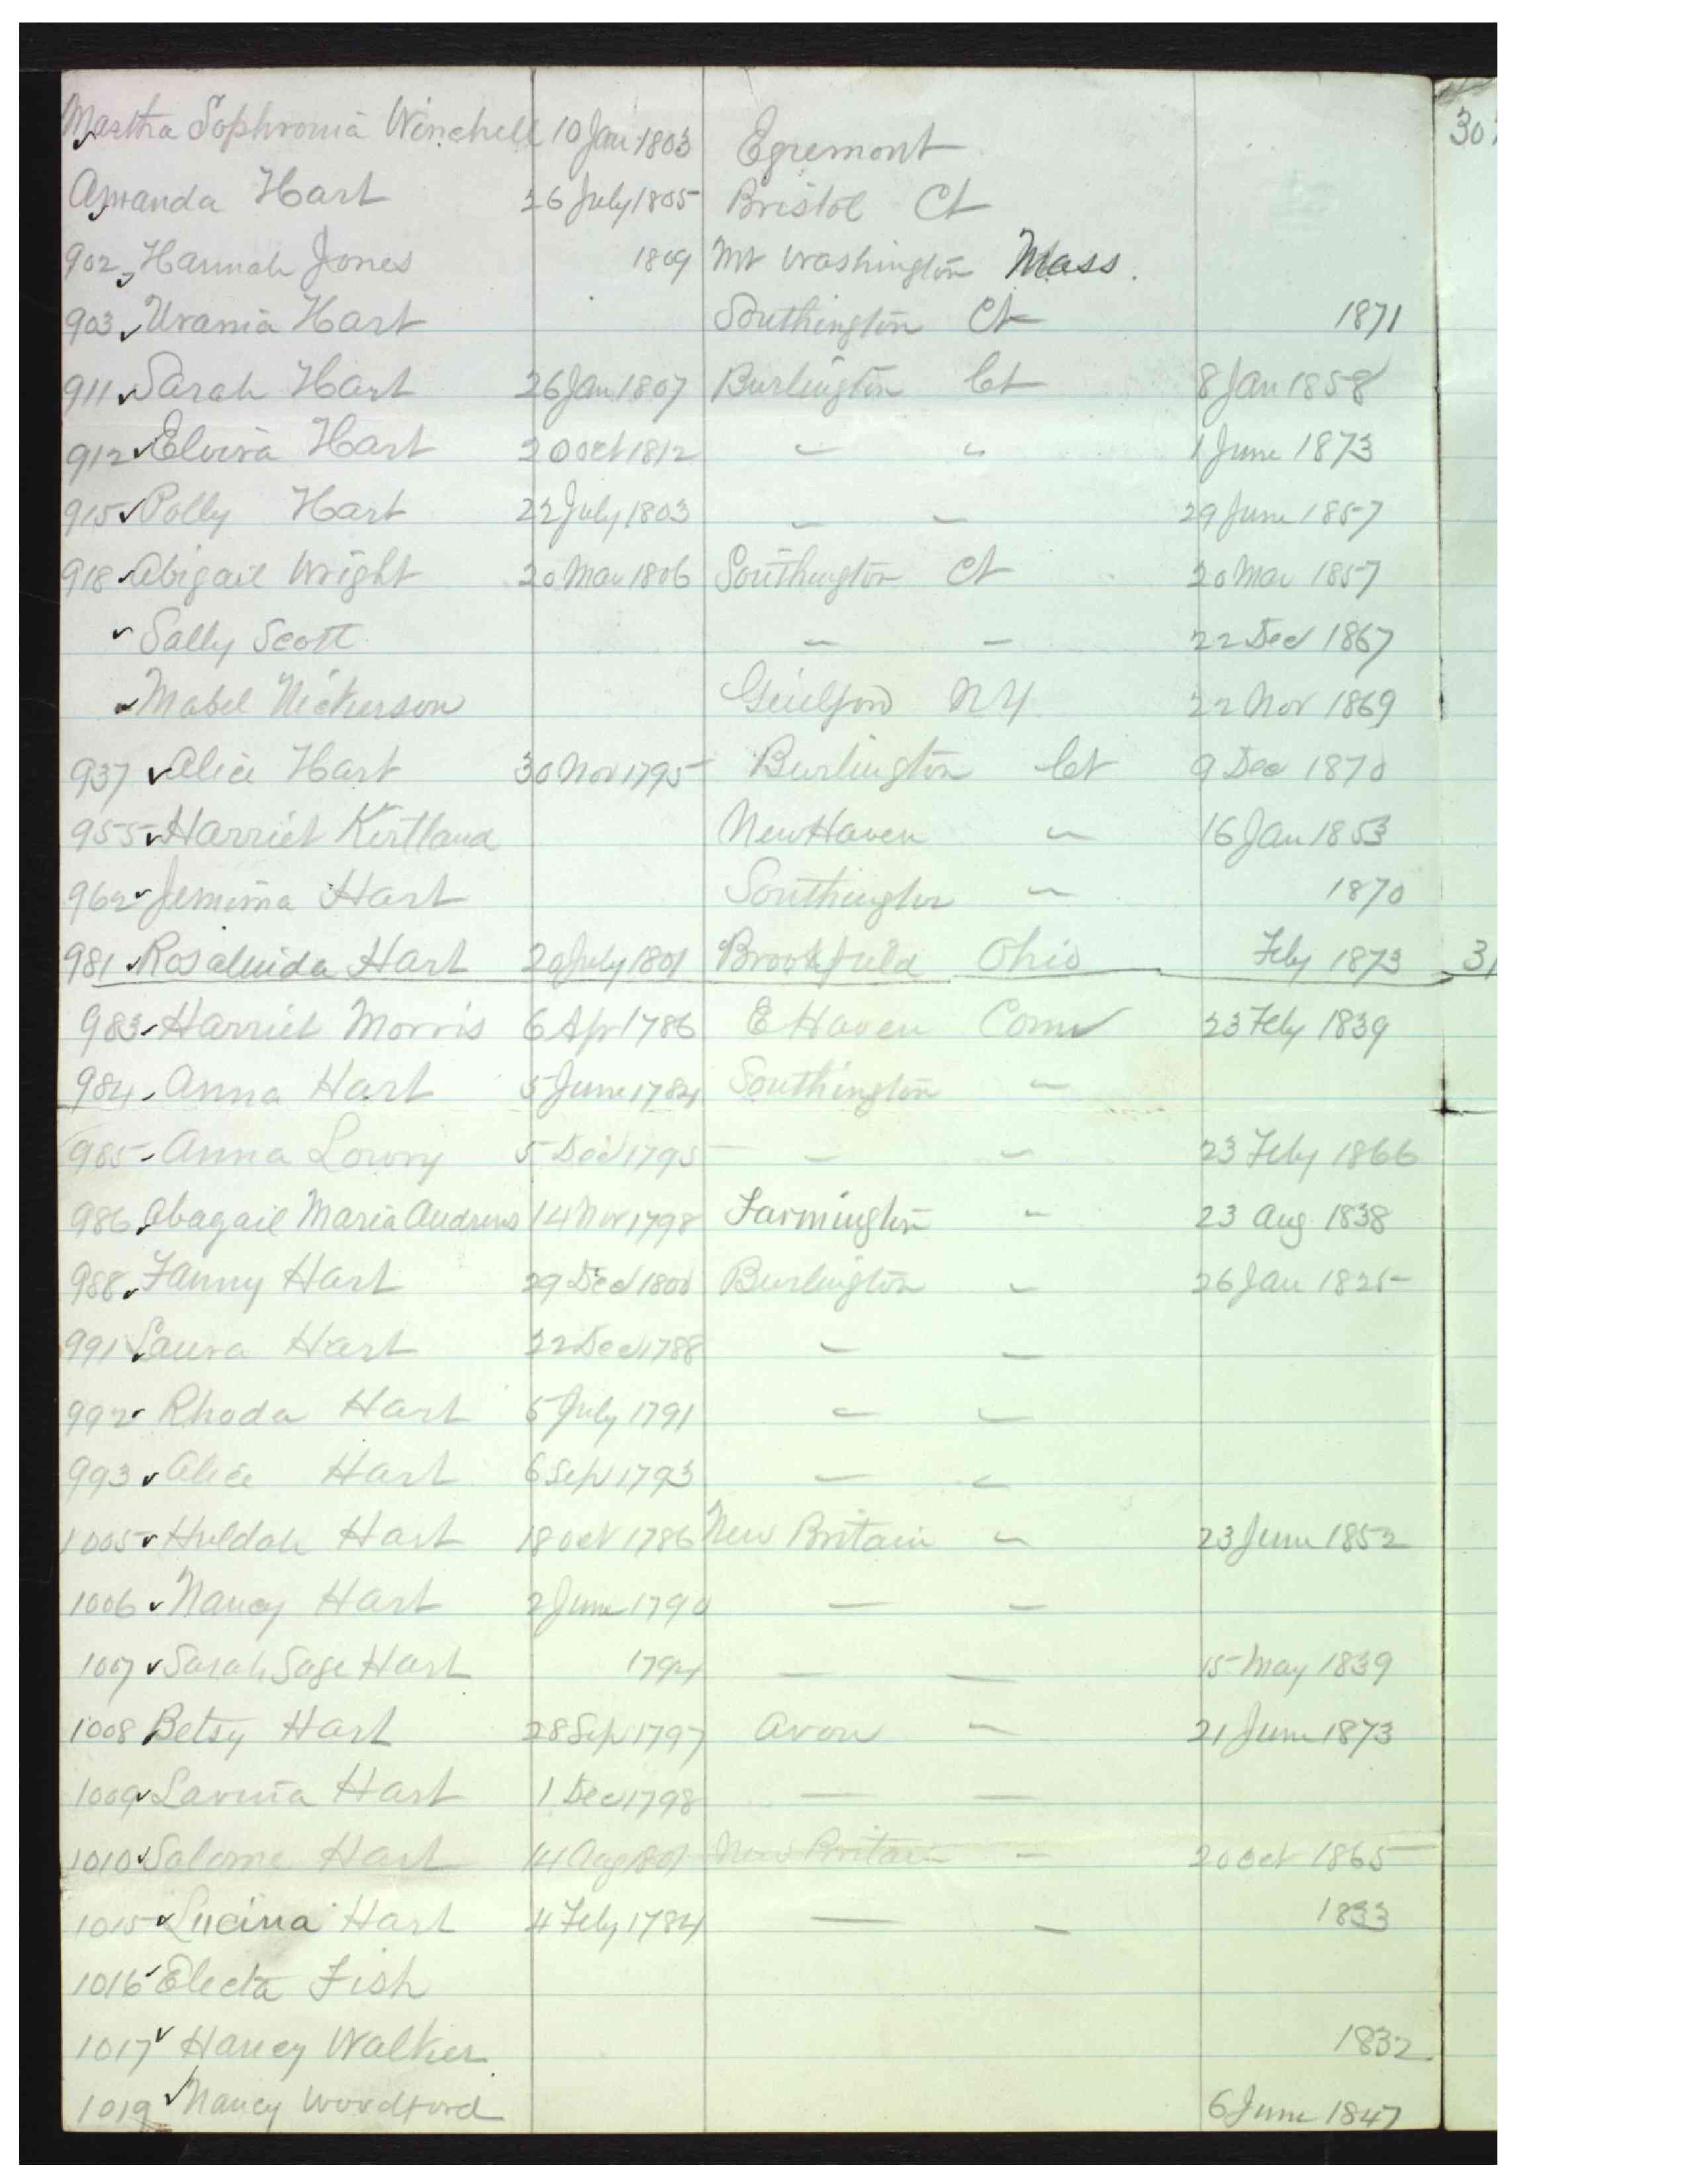 Martha Sophronia Winchell 10 Jan 1803 Egremont
Amanda Hart 26 July 1805 Bristol Ct
902 Hannah Jones 1809 Mt Washington Mass.
903 Urania Hart Southington Ct 1871
911 Sarah Hart 26 Jan 1807 Burlington Ct 8 Jan 1858
912 Elvira Hart 20 Oct 1812 " " 1 June 1873
915 Polly Hart 22 July 1803 " " 29 June 1857
918 Abigail Wright 20 Mar 1806 Southington Ct 20 Mar 1857
Sally Scott " " 22 Dec 1867
Mabel Nickerson Guilford NY 22 Nov 1869
937 Alice Hart 30 Nov 1795 Burlington Ct 9 Dec 1870
955 Harriet Kirtland New Haven " 16 Jan 1853
962 Jemima Hart Southington " 1870
981 Rosalinda Hart July 1801 Brookfield Ohio Feby 1873
983 Harriet Morris 6 Apr 1786 E Haven Conn 23 Feby 1839
984 Anna Hart 5 June 1784 Southington "
985 Anna Lowry 5 Dec 1795 " " 23 Feby 1866
986 Abagail Maria Andrews 14 Nov 1798 Farmington " 23 Aug 1838
988 Fanny Hart 29 Dec 1800 Burlington " 26 Jan 1825
991 Laura Hart 22 Dec 1788 " "
992 Rhoda Hart 5 July 1791 " "
993 Alice Hart 6 Sep 1793 " "
1005 Huldah Hart 18 Oct 1786 New Britain " 23 June 1852
1006 Nancy Hart 2 June 1790 " "
1007 Sarah Sage Hart 1794 " " 15 May 1839
1008 Betsy Hart 28 Sep 1797 Avon " 21 June 1873
1009 Lavina Hart 1 Dec 1798 " "
1010 Salome Hart 14 Aug 1801 New Britain " 20 Oct 1865
1015 Lucina Hart 4 Feby 1784 " " 1833
1016 Electa Fish
1017 Walker 1832
1019 Nancy Woodford 6 June 1847